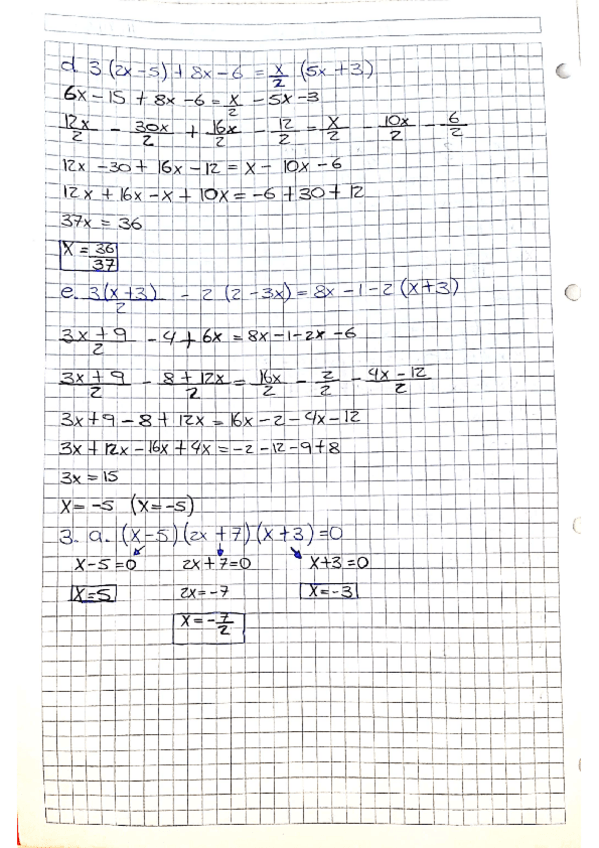 d. 3 (2x-5) + 8x - 6 = x/2 (5x+3)
6x - 15 + 8x - 6 = x/2 - 5x - 3
12x/2 - 30x/2 + 16x/2 - 12/2 = x/2 - 10x/2 - 6/2
12x - 30 + 16x - 12 = x - 10x - 6
12x + 16x - x + 10x = -6 + 30 + 12
37x = 36
x = 36/37
e. 3(x+3)/2 - 2 (2-3x) = 8x - 1 - 2 (x+3)
3x+9/2 - 4 + 6x = 8x - 1 - 2x - 6
3x+9/2 - 8+12x/2 = 16x/2 - 2/2 - 4x-12/2
3x + 9 - 8 + 12x = 16x - 2 - 4x - 12
3x + 12x - 16x + 4x = -2 - 12 - 9 + 8
3x = 15
x = -5 (x = -5)
3. a. (x-5) (2x+7) (x+3) = 0
x-5=0 2x+7=0 x+3=0
x=5 2x=-7 x=-3
x = -7/2